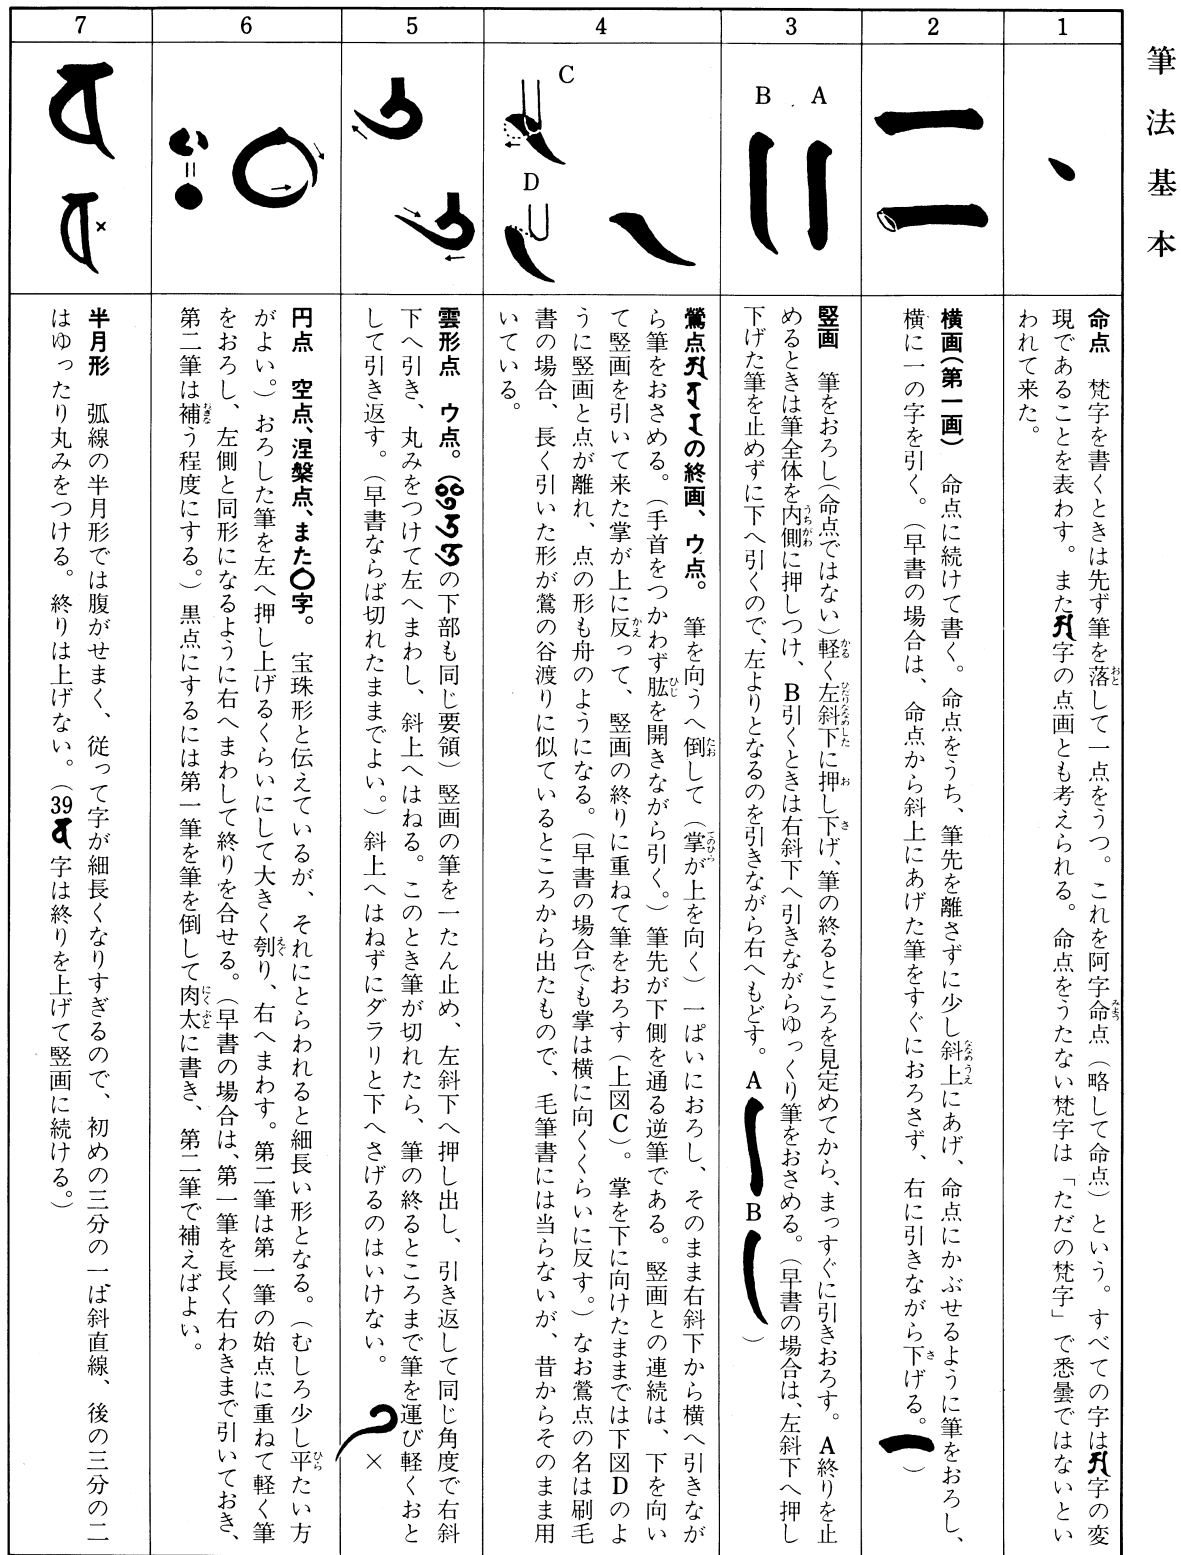 筆法基本
1
命点　梵字を書くときは先ず筆を落して一点をうつ。これを阿字命点（略して命点）という。すべての字は𑖀字の変
現であることを表わす。また𑖀字の点画とも考えられる。命点をうたない梵字は「ただの梵字」で悉曇ではないとい
われて来た。
2
横画（第一画）　命点に続けて書く。命点をうち、筆先を離さずに少し斜上にあげ、命点にかぶせるように筆をおろし、
横に一の字を引く。（早書の場合は、命点から斜上にあげた筆をすぐにおろさず、右に引きながら下げる。）
3
A
B
竪画　筆をおろし（命点ではない）軽く左斜下に押し下げ、筆の終るところを見定めてから、まっすぐに引きおろす。A終りを止
めるときは筆全体を内側に押しつけ、B引くときは右斜下へ引きながらゆっくり筆をおさめる。（早書の場合は、左斜下へ押し
下げた筆を止めずに下へ引くので、左よりとなるのを引きながら右へもどす。A B）
4
C
D
鶯点の終画、ウ点。　筆を向うへ倒して（掌が上を向く）一ぱいにおろし、そのまま右斜下から横へ引きなが
ら筆をおさめる。（手首をつかわず肱を開きながら引く。）筆先が下側を通る逆筆である。竪画との連続は、下を向い
て竪画を引いて来た掌が上に反って、竪画の終りに重ねて筆をおろす（上図C）。掌を下に向けたままでは下図Dのよ
うに竪画と点が離れ、点の形も舟のようになる。（早書の場合でも掌は横に向くくらいに反す。）なお鶯点の名は刷毛
書の場合、長く引いた形が鶯の谷渡りに似ているところから出たもので、毛筆書には当らないが、昔からそのまま用
いている。
5
雲形点　ウ点。（の下部も同じ要領）竪画の筆を一たん止め、左斜下へ押し出し、引き返して同じ角度で右斜
下へ引き、丸みをつけて左へまわし、斜上へはねる。このとき筆が切れたら、筆の終るところまで筆を運び軽くおと
して引き返す。（早書ならば切れたままでよい。）斜上へはねずにダラリと下へさげるのはいけない。×
6
円点　空点、涅槃点、また〇字。　宝珠形と伝えているが、それにとらわれると細長い形となる。（むしろ少し平たい方
がよい。）おろした筆を左へ押し上げるくらいにして大きく刳り、右へまわす。第二筆は第一筆の始点に重ねて軽く筆
をおろし、左側と同形になるように右へまわして終りを合せる。（早書の場合は、第一筆を長く右わきまで引いておき、
第二筆は補う程度にする。）黒点にするには第一筆を筆を倒して肉太に書き、第二筆で補えばよい。
7
×
半月形　弧線の半月形では腹がせまく、従って字が細長くなりすぎるので、初めの三分の一ば斜直線、後の三分の二
はゆったり丸みをつける。終りは上げない。（39字は終りを上げて竪画に続ける。）